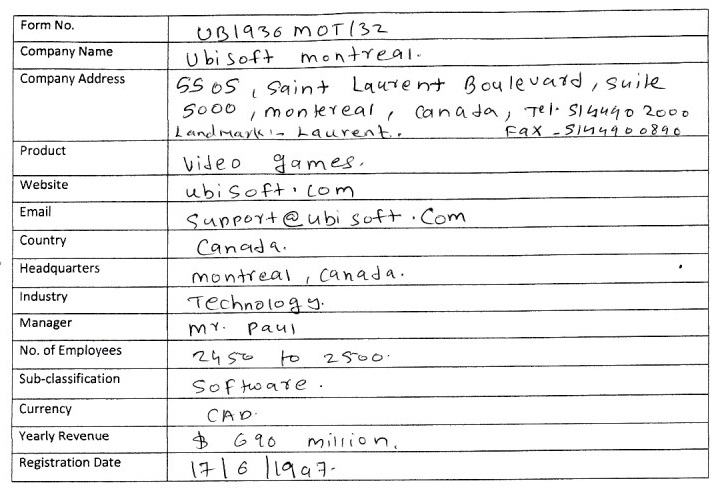 Form No. UB1936 MOT/32
Company Name Ubisoft montreal.
Company Address 5505, Saint Laurent Boulevard, suite
5000, montereal, Canada, Tel. 5144902000
Landmark:- Laurent. Fax - 5144900890
Product video games.
Website ubisoft.com
Email support@ubisoft.com
Country Canada.
Headquarters montreal, Canada.
Industry Technology.
Manager mr. Paul
No. of Employees 2450 to 2500.
Sub-classification Software.
Currency CAD.
Yearly Revenue $ 690 million.
Registration Date 17/6/1997.